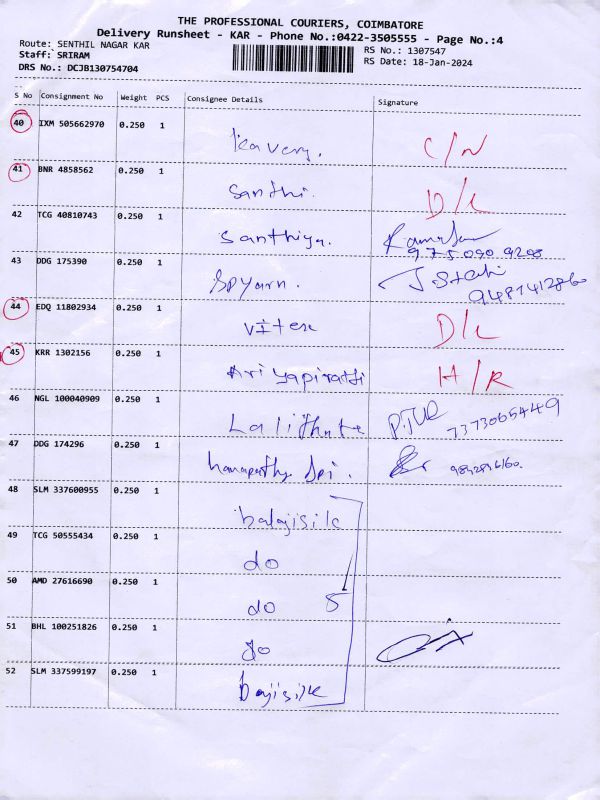 THE PROFESSIONAL COURIERS, COIMBATORE
Delivery Runsheet - KAR - Phone No.:0422-3505555 - Page No.:4
Route: SENTHIL NAGAR KAR
RS No.: 1307547
Staff: SRIRAM
RS Date: 18-Jan-2024
DRS No.: DCJB130754704
S No Consignment No Weight PCS Consignee Details Signature
40 IXM 505662970 0.250 1
kavery. C/N
41 BNR 4858562 0.250 1
Santhi. D/L
42 TCG 40810743 0.250 1
Santhiya.
975 090 9208
43 DDG 175390 0.250 1
Spyarn.
9481412860
44 EDQ 11802934 0.250 1
D/L
45 KRR 1302156 0.250 1
H/R
46 NGL 100040909 0.250 1
7373065449
47 DDG 174296 0.250 1
48 SLM 337600955 0.250 1
balajisilk
49 TCG 50555434 0.250 1
do
50 AMD 27616690 0.250 1
do 5
51 BHL 100251826 0.250 1
do
52 SLM 337599197 0.250 1